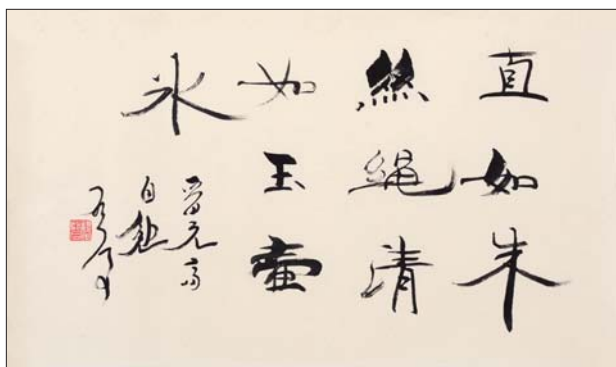 直如朱
絲繩清
如玉壺
冰
自勉